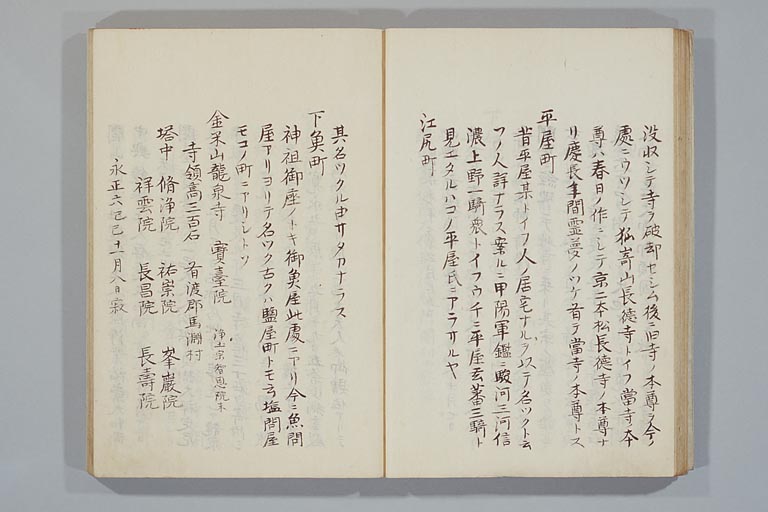 没収シテ寺ヲ破却セシム後ニ旧寺ノ本尊ヲ今ノ
處ニウツシテ狐崎山長徳寺トイフ當寺ノ本
尊ハ春日ノ作ニシテ京二本松長徳寺ノ本尊ナ
リ慶長年間霊夢ノツケ有テ當寺ノ本尊トス
平屋町
昔平屋某トイフ人ノ居宅ナルヲ以テ名ツクト云
フノ人詳ナラス案ルニ甲陽軍鑑ニ駿河三河信
濃上野一騎衆トイフウチニ平屋玄蕃三騎ト
見エタルハコノ平屋氏ニアラサルヤ
江尻町
其名ツクル由サタカナラス
下魚町
神祖御座ノトキ御魚屋此處ニアリ今ニ魚問
屋アリヨリテ名ツク古クハ鹽屋町トモ云塩問屋
モコノ町ニアリシトソ
金米山龍泉寺 寶臺院 浄土宗智恩院末
寺領高三百石 有渡郡馬淵村
塔中 脩浄院 祐崇院 峯巖院
祥雲院 長昌院 長壽院
永正六己巳十一月八日寂